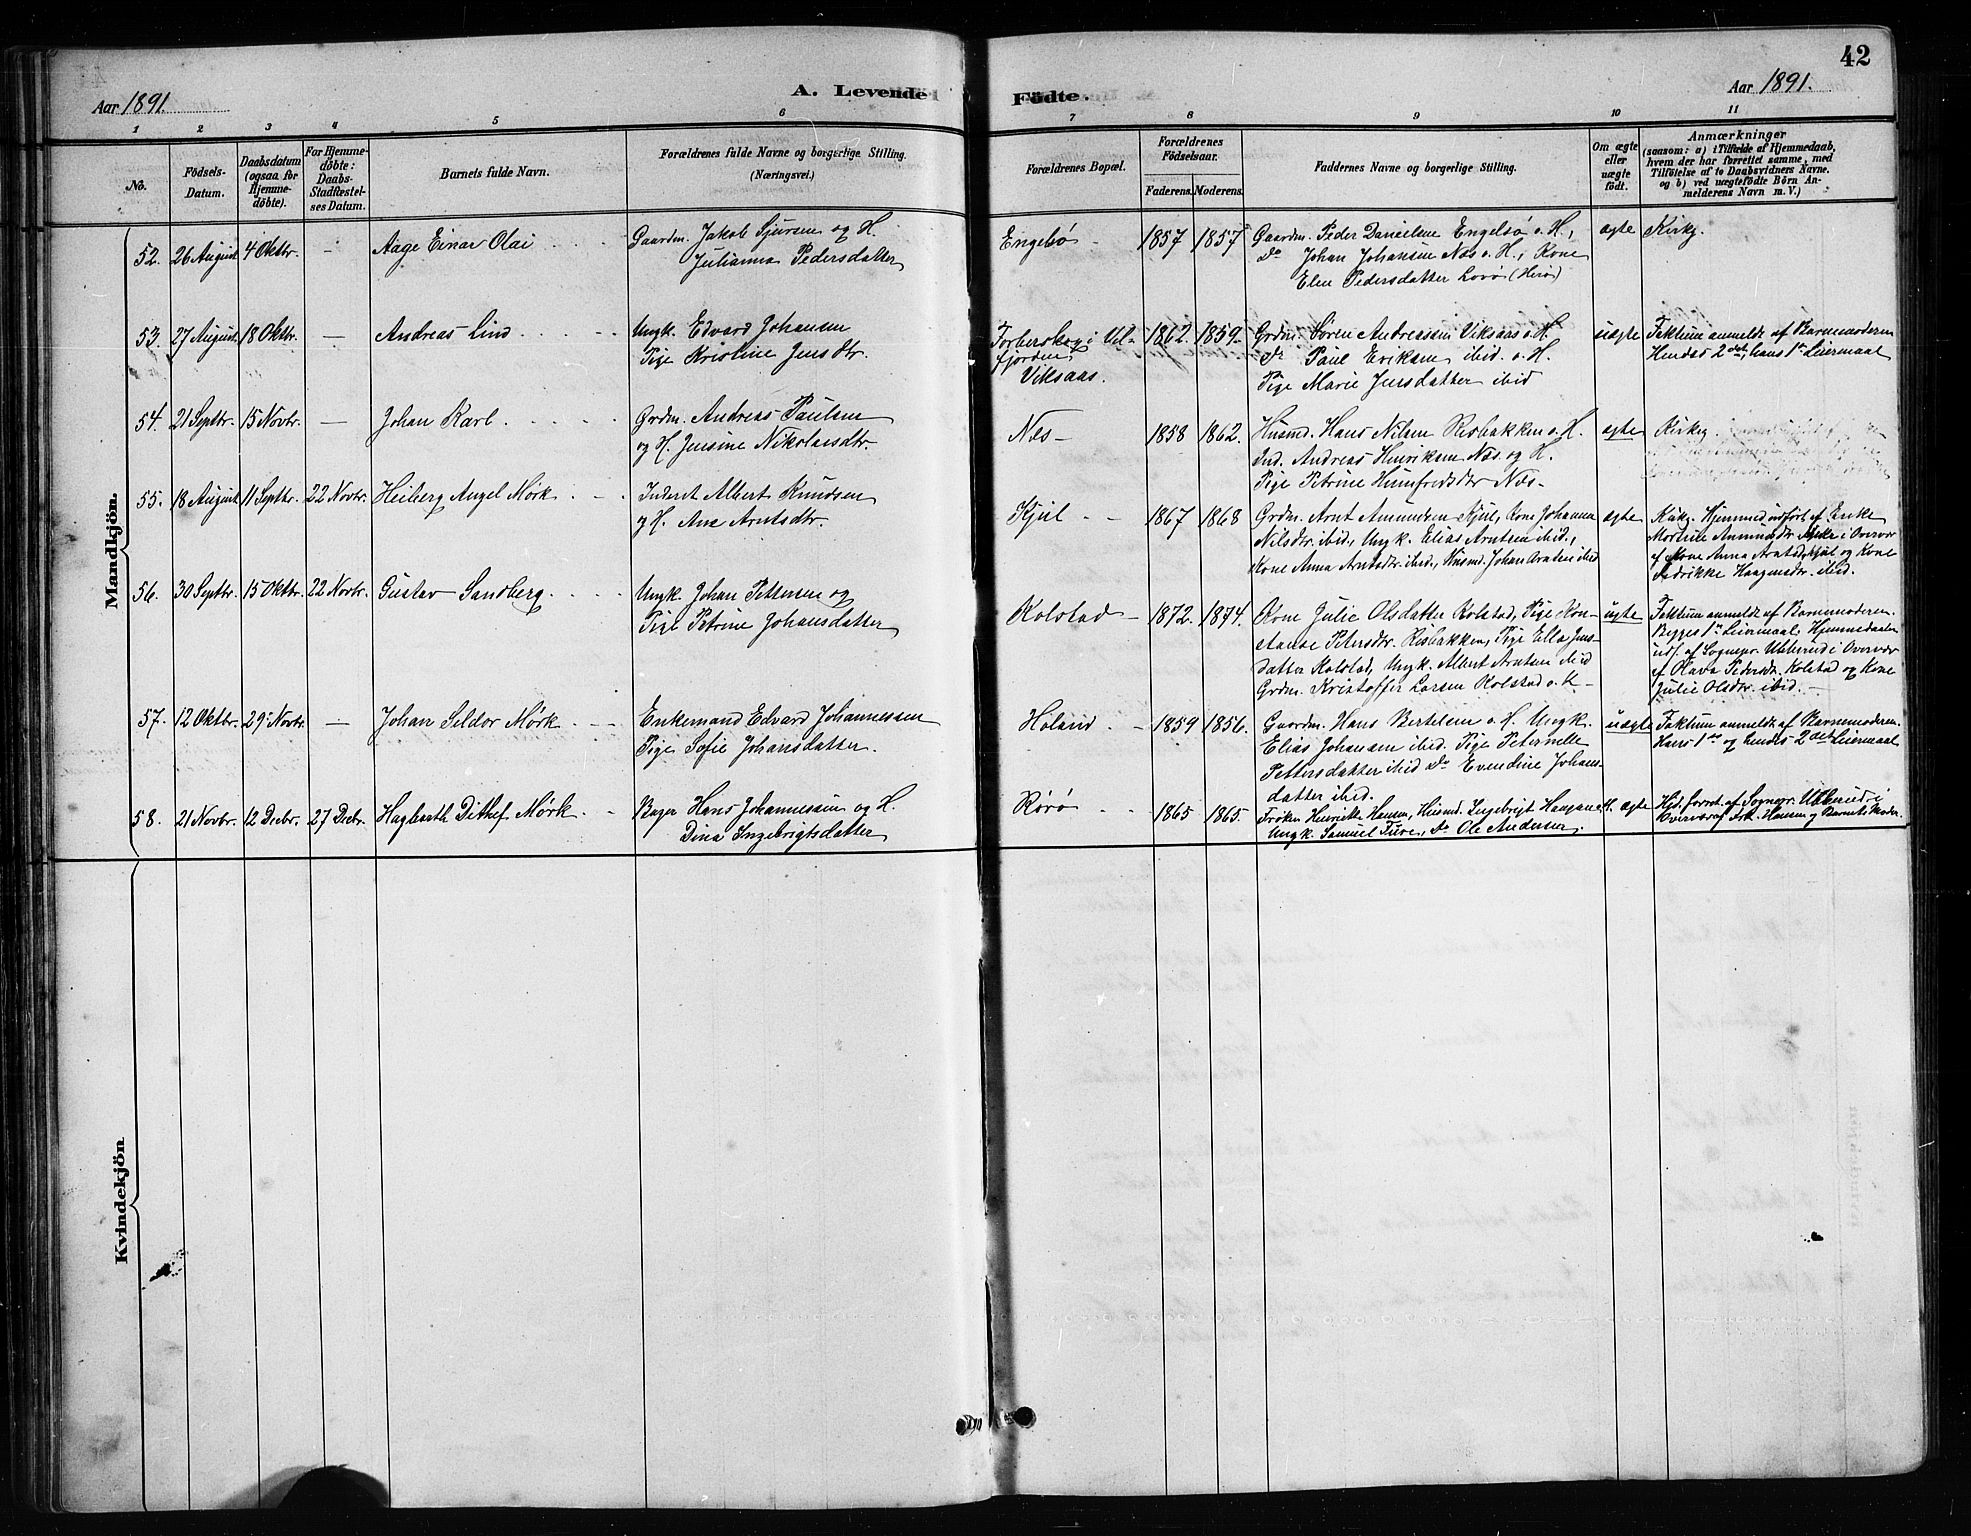 42
Aar 1891.
A. Levende
Fødte.
Aar 1891.
1 2 3 4 5 6 7 8 9 10 11
No.
Födsels-
Datum.
Daabsdatum
(ogsaa for
Hjemme-
döbte).
For Hjemme-
döbte:
Daabs-
Stadfæstel-
ses Datum.
Barnets fulde Navn.
Forældrenes fulde Navne og borgerlige Stilling.
(Næringsvei.)
Forældrenes Bopæl.
Forældrenes
Födselsaar.
Faderens. Moderens.
Faddernes Navne og borgerlige Stilling.
Om ægte
eller
uægte
født.
Anmærkninger
(saasom: a) i Tilfælde af Hjemmedaab,
hvem der har forrettet samme, med
Tilføielse af to Daabsvidners Navne.
og b) ved uægtefødte Børn An-
melderens Navn m. V.)
Mandkjön.
52. 26 August 4 Oktbr. — Aage Einar Olai
Gaardm. Jakob Sjursen og H.
Julianna Pedersdatter
Engelsø 1857 1857
Gaardm. Peder Danielsen Engelsø o. H.,
Do Johan Johansen Næs o. H., Kone
Elen Pedersdatter Lovø (Herø)
ægte Kirkg.
53. 27 August 18 Oktbr. — Andreas Lind
Ungk. Edvard Johansen
Pige Kristine Jensdtr.
Torberskog i Vel-
fjorden,
Viksaas.
1862. 1859.
Grdm. Søren Andreassen Viksaas o. H.
Do Paul Eriksen ibid. o. H.
Pige Marie Jensdatter ibid
uægte Faktum anmeldt af Barnemoderen
Hendes 2det, hans 1te Leiermaal
54. 21 Septbr. 15 Novbr. — Johan Karl
Grdm. Andreas Paulsen
og H. Jensine Nikolaisdtr.
Næs 1858 1862.
Husmd. Hans Nilsen Risbakken o. H.
Ind. Andreas Henriksen Næs. og H.
Pige Petrine Humfredsdtr Næs
ægte Kirkeg.
55. 18 August 11 Septbr. 22 Novbr. Heiberg Angel Mørk
Inderst Albert Knudsen
og H. Ane Arntsdtr.
Kjul 1867 1868
Grdm. Arnt Amundsen Kjul, Kone Johanna
Nilsdtr. ibid., Ungk. Elias Arntsen ibid.,
Kone Anna Arntsdtr. ibid., Husmd. Johan Arntsen ibid
ægte Kirkg. Hjemmed. udført af Enke
af Kone Anna Arntsd. Kjul og Kone
Fredrikke Haagensdr. ibid.
56. 30 Septbr. 15 Oktbr. 22 Novbr. Gustav Sandberg
Ungk. Johan Pettersen og
Pige Petrine Johansdatter
Kolstad 1872. 1874.
Kone Julie Olsdatter Kolstad, Pige Kon-
stanse Petersdtr. Risbakken, Pige Ella Jens-
datter Kolstad, Ungk. Albert Arntsen ibid
Grdm. Kristoffer Larsen Kolstad o. H
uægte Faktum anmeldt af Barnemoderen.
Begges 1te Leiermaal. Hjemmedaaben
udf. af Sognepr. i Overvær
af Olava Pedersdt. Kolstad og Kone
Julie Olsdtr. ibid.
57. 12 Oktbr. 29 Novbr. — Johan Seldor Mørk
Enkemand Edvard Johannessen
Pige Sofie Johansdatter.
Holand 1859 1856.
Gaardm. Hans Bertelsen o. H. Ungk.
Elias Johansen ibid. Pige Peternelle
Pettersdatter ibid Do Evendine Johans-
datter ibid.
uægte Faktum anmeldt af Barnemoderen.
Hans 1te og hendes 2det Leiermaal
58. 21 Novbr. 12 Decbr. 27 Decbr. Hagbarth Dithlef Mørk
Bager Hans Johannessen og H.
Dina Ingebrigtsdatter
Rørø 1865 1865
Frøken Henriette Hansen, Husmd. Ingebrigt Haagensen
Ungk. Samuel Ture, Do Ole Andersen.
ægte Hjd. forret. af Sognepr. i
Overvær af Frk. Hansen og Barnets Moder.
Kvindekjön.